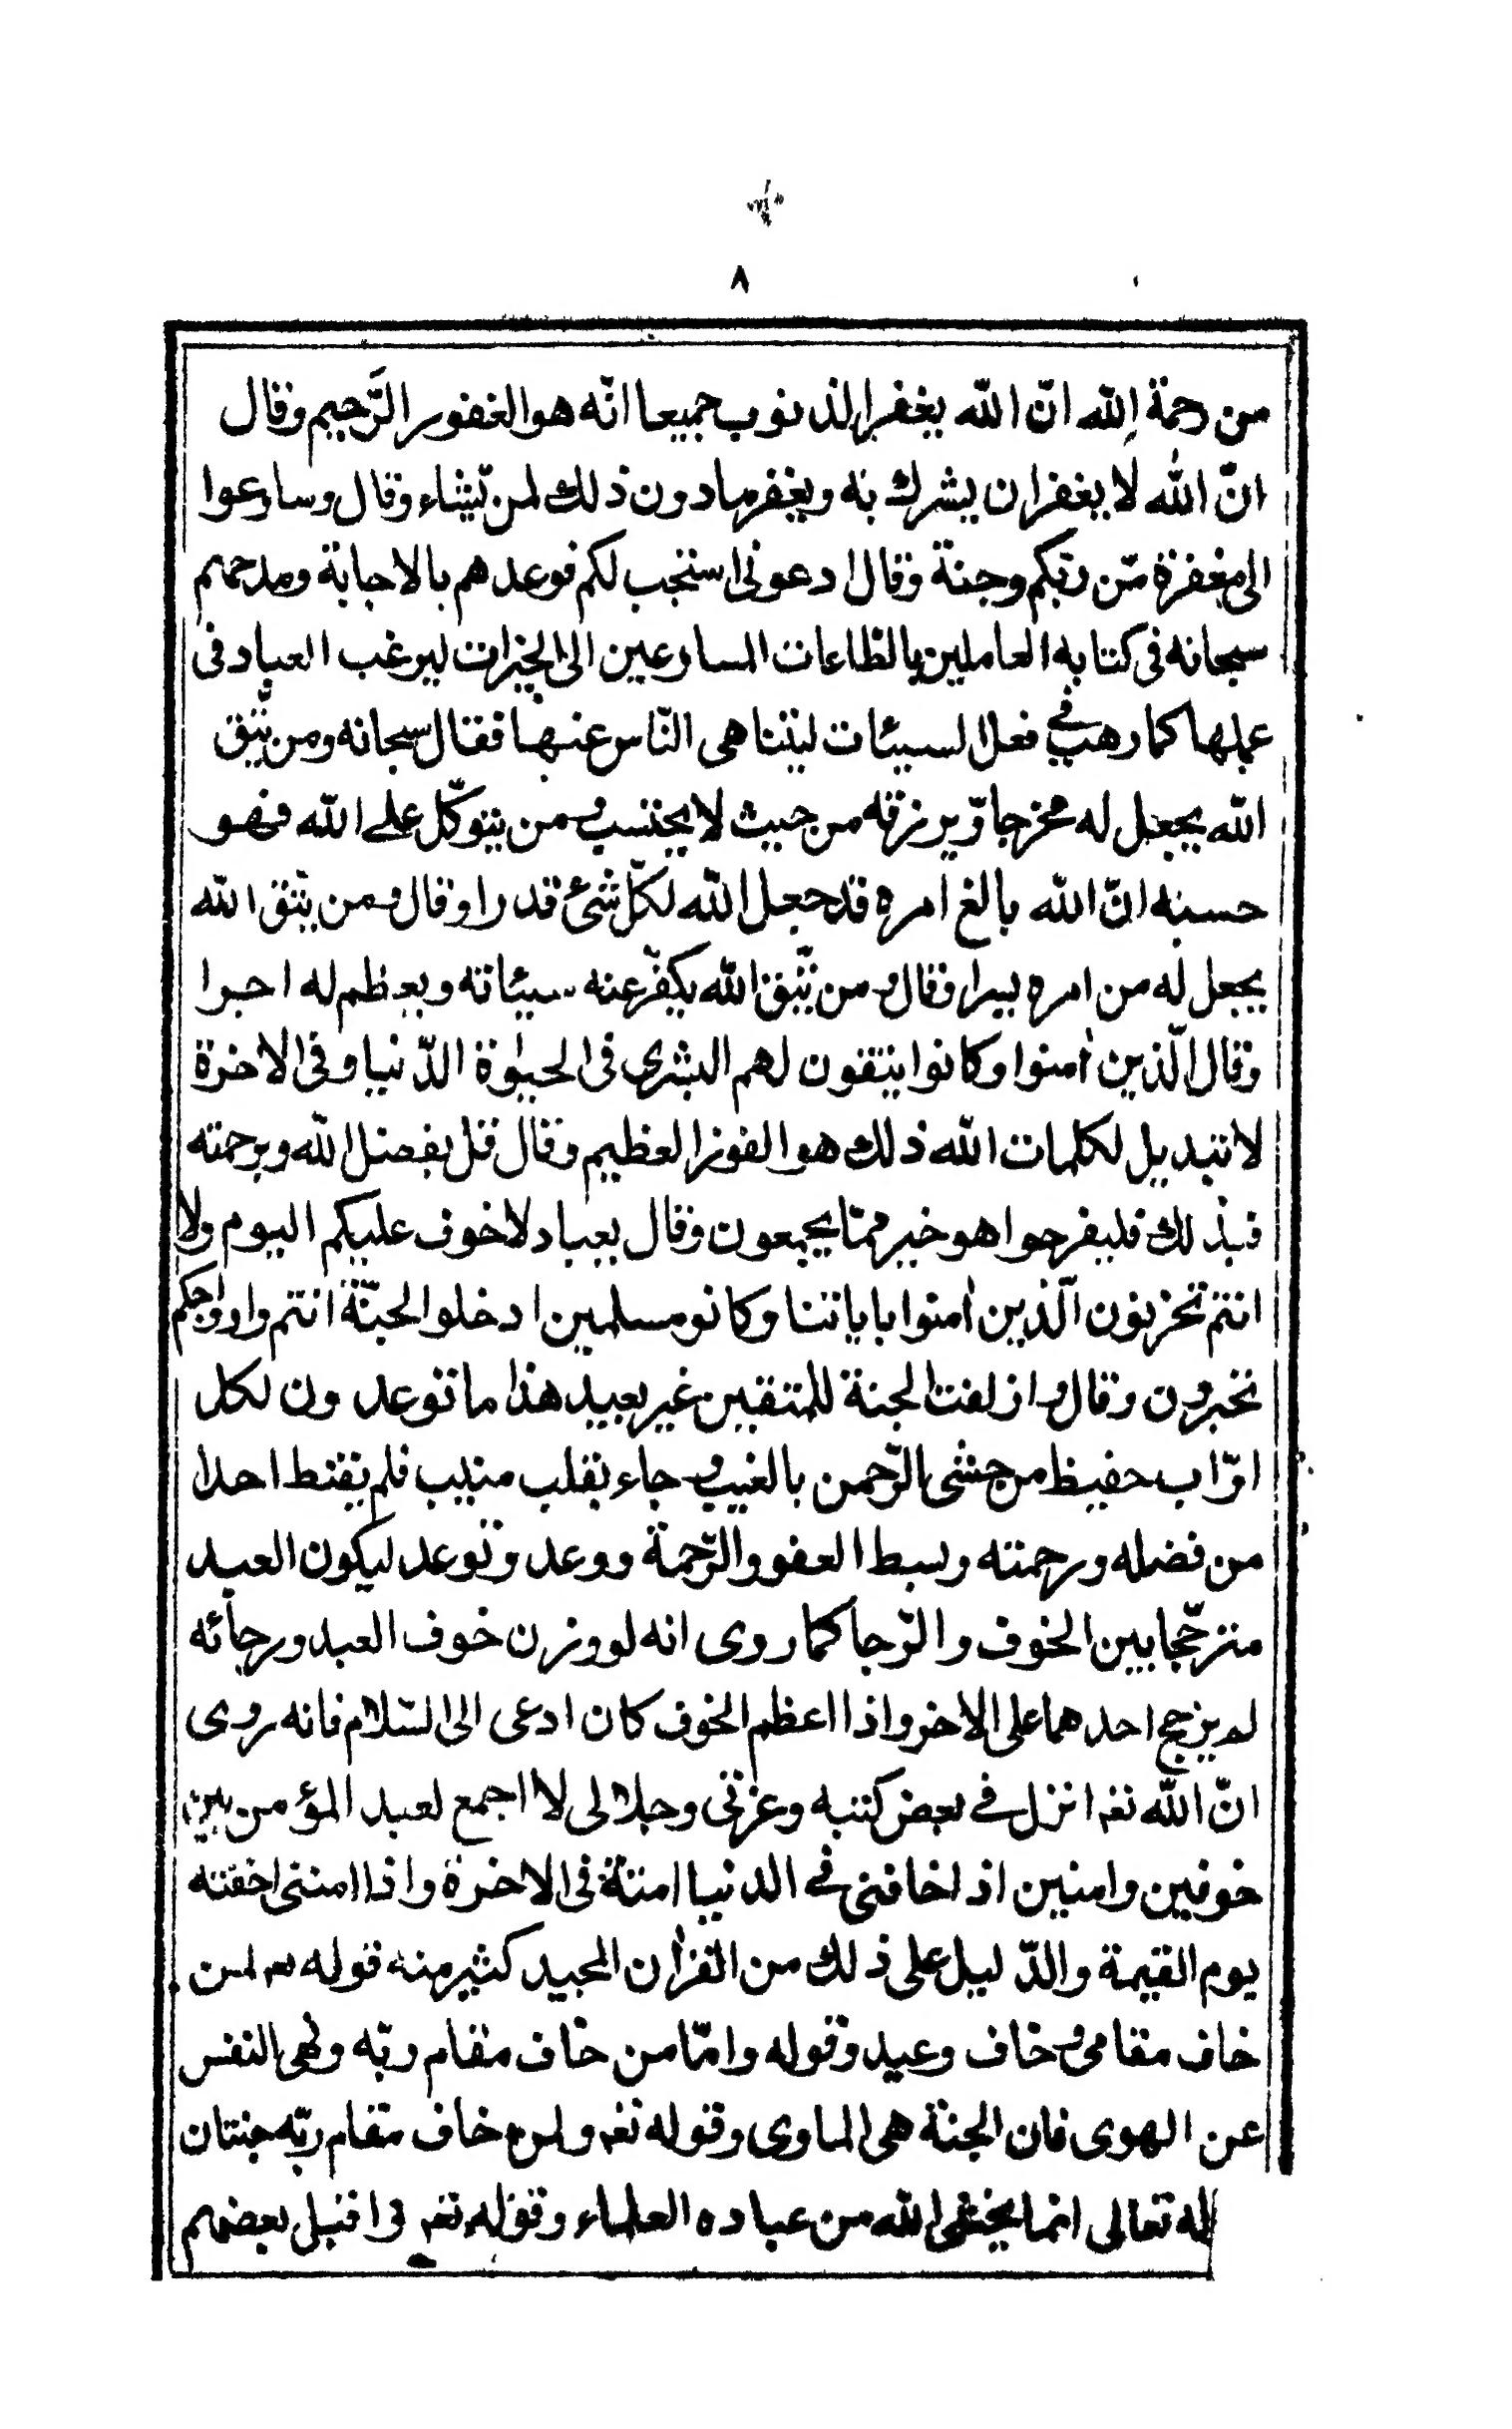 ٨
من رحمة الله انّ الله يغفر الذنوب جميعا انّه هو الغفور الرّحيم وقال
انّ الله لا يغفر ان يشرك به ويغفر مادون ذلك لمن يّشاء وقال وسارعوا
الى مغفرة مّن ربكم وجنة وقال ادعونى استجب لكم فوعدهم بالاجابة ومدحهم
سبحانه فى كتابه العاملين بالطاعات المسارعين الى الخيرات ليرغب العباد فى
عملها كما رهب فى فعل السيئات ليتناهى النّاس عنها فقال سبحانه ومن يّتق
الله يجعل له مخرجا وّيرزقه من حيث لا يحتسب ومن يتوكّل على الله فهو
حسبه انّ الله بالغ امره قد جعل الله لكلّ شئ قدرا وقال ومن يّتق الله
يجعل له من امره يسرا وقال ومن يّتق الله يكفّر عنه سيئاته ويعظم له اجرا
وقال الّذين اٰمنوا وكانوا يتقون لهم البشرى فى الحيٰوة الدّنيا وفى الاخرة
لا تبديل لكلمات الله ذلك هو الفوز العظيم وقال قل بفضل الله وبرحمته
فبذلك فليفرحوا هو خير ممّا يجمعون وقال يعباد لا خوف عليكم اليوم ولا
انتم تحزنون الّذين اٰمنوا باياتنا وكانو مسلمين ادخلوا الجنّة انتم وازواجكم
تحبرون وقال وازلفت الجنة للمتقين غير بعيد هذا ما توعدون لكل
اوّاب حفيظ من خشى الرّحمن بالغيب وجاء بقلب منيب فلم يقنط احدا
من فضله ورحمته وبسط العفو والرّحمة ووعد وتوعد ليكون العبد
مترجّحا بين الخوف والرّجا كما روى انه لو وزن خوف العبد ورجائه
لم يرجح احدهما على الاخر واذا اعظم الخوف كان ادعى الى السّلام فانه روى
انّ الله تعه انزل فے بعض كتبه وعزتى وجلالى لا اجمع لعبد المؤمن بين
خوفين وامنين اذ اخافنى فے الدنيا امنتة فى الاخرة واذا امننى اخفته
يوم القيمة والدّليل على ذلك من القراٰن المجيد كثير منه قوله لمن
خاف مقامى وخاف وعيد وقوله وامّا من خاف مقام ربّه ونهى النفس
عن الهوى فان الجنّة هى الماوى وقوله تعه ولمن خاف مقام ربّه جنتان
له تعالى انما يخشى الله من عباده العلماء وقوله تعه واقبل بعضهم